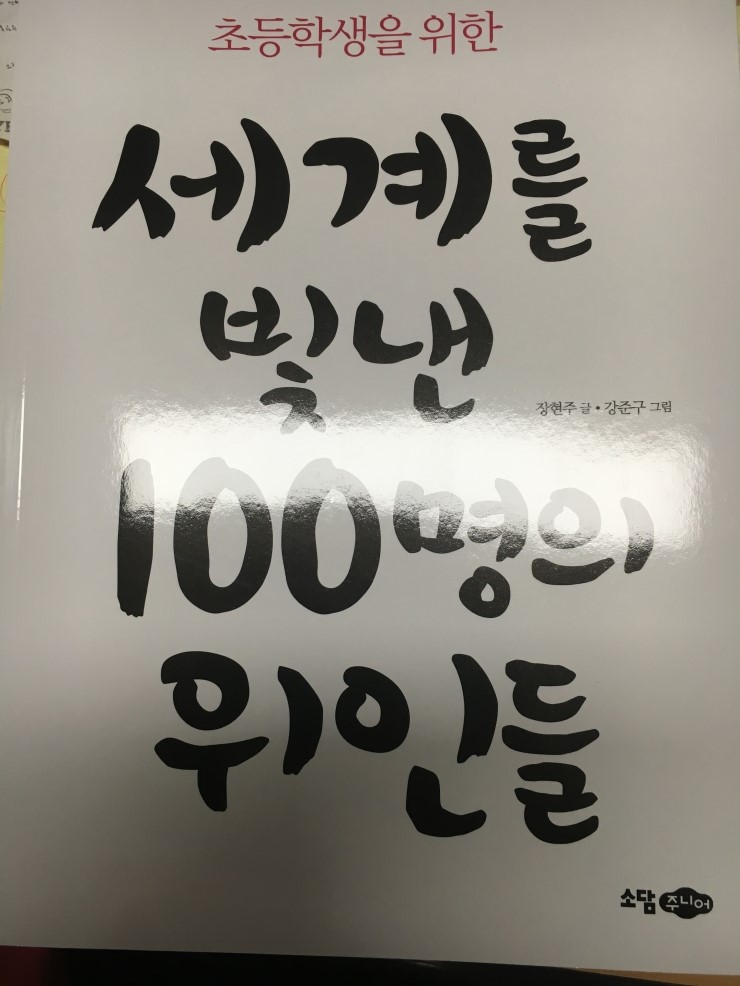 초등학생을 위한
세계를
빛낸
장현주 글 • 강준구 그림
100명의
위인들
소담 주니어